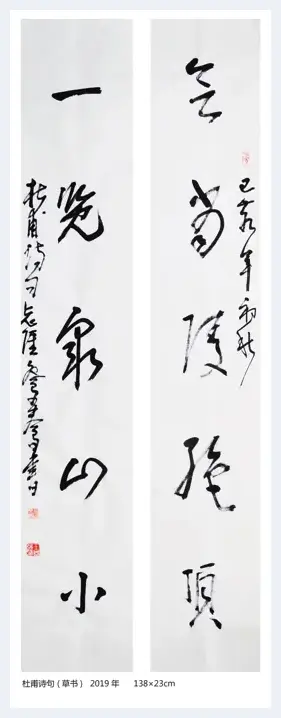 会當陵絶頂
己亥年初秋
一览眾山小
杜甫诗句
杜甫诗句（草书） 2019 年 138×23cm